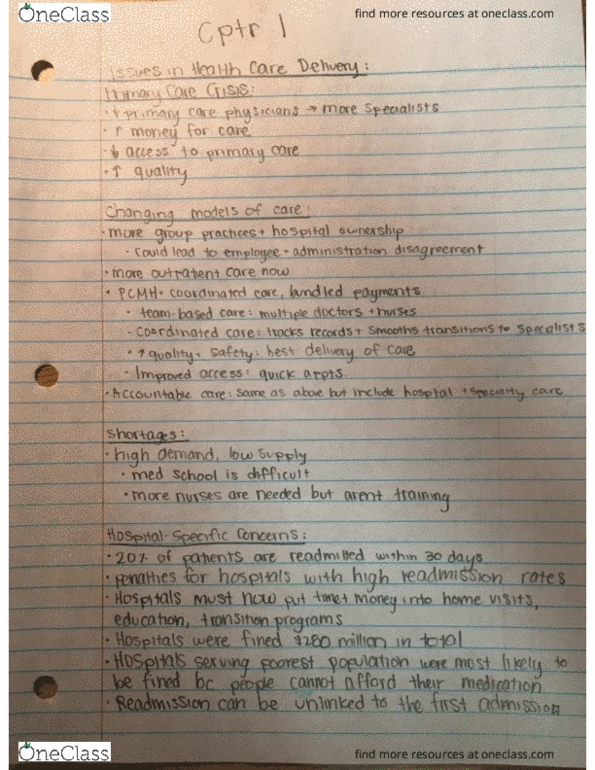 OneClass
find more resources at oneclass.com
Cptr 1
Issues in Health Care Delivery:
Primary Care Crisis:
· ↓ primary care physicians → more specialists
· ↑ money for care
· ↓ access to primary care
· ↑ quality
Changing models of care:
· more group practices + hospital ownership
· could lead to employee - administration disagreement
· more outpatient care now
· PCMH - coordinated care, bundled payments
· team-based care: multiple doctors + nurses
- coordinated care: tracks records + smooths transitions to specialists
· ↑ quality + safety: best delivery of care
· Improved access: quick appts.
· Accountable care: same as above but include hospital + specialty care
Shortages:
· high demand, low supply
· med school is difficult
· more nurses are needed but arent training
Hospital-Specific Concerns:
· 20% of patients are readmitted within 30 days
· penalties for hospitals with high readmission rates
· Hospitals must now put time + money into home visits,
education, transition programs
· Hospitals were fined $280 million in total
· Hospitals serving poorest population were most likely to
be fined bc people cannot afford their medication
· Readmission can be unlinked to the first admission
OneClass
find more resources at oneclass.com